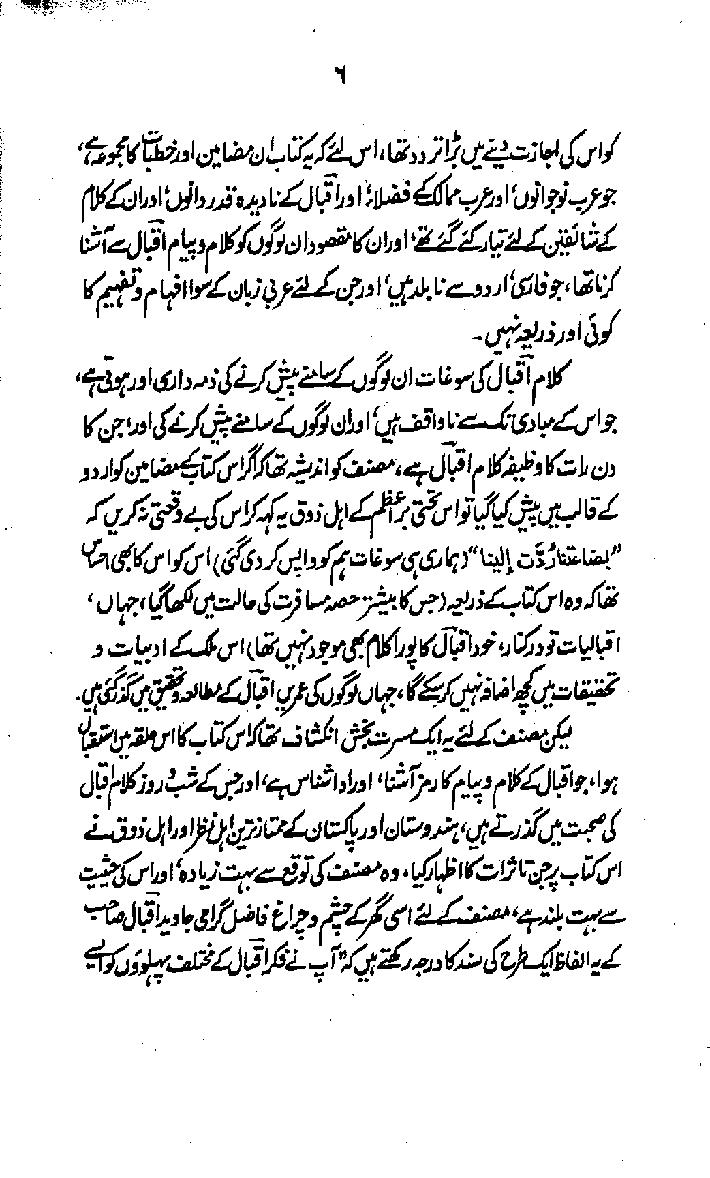 ۶
کو اس کی اجازت دینے میں بڑا تردد تھا، اس لئے کہ یہ کتاب ان مضامین اور خطبات کا مجموعہ ہے،
جو عرب نوجوانوں' اور عرب ممالک کے فضلاء' اور اقبال کے نادیدہ قدر دانوں' اور ان کے کلام
کے شائقین کے لئے تیار کئے گئے تھے' اور ان کا مقصود ان لوگوں کو کلام و پیام اقبال سے آشنا
کرنا تھا، جو فارسی' اردو سے نابلد ہیں' اور جن کے لئے عربی زبان کے سوا افہام و تفہیم کا
کوئی اور ذریعہ نہیں۔
کلام اقبال کی سوغات ان لوگوں کے سامنے پیش کرنے کی ذمہ داری اور ہوتی ہے،
جو اس کے مبادی تک سے ناواقف ہیں' اور ان لوگوں کے سامنے پیش کرنے کی اور' جن کا
دن رات کا وظیفہ کلام اقبال ہے، مصنف کو اندیشہ تھا کہ اگر اس کتاب کے مضامین کو اردو
کے قالب میں پیش کیا گیا تو اس تحتی بر اعظم کے اہل ذوق یہ کہہ کر اس کی بے وقعتی نہ کریں کہ
"بضاعتنا ردّت إلینا" (ہماری ہی سوغات ہم کو واپس کر دی گئی) اس کو اس کا بھی احساس
تھا کہ وہ اس کتاب کے ذریعہ (جس کا بیشتر حصہ مسافرت کی حالت میں لکھا گیا، جہاں'
اقبالیات تو درکنار، خود اقبال کا پورا کلام بھی موجود نہیں تھا) اس ملک کے ادبیات و
تحقیقات میں کچھ اضافہ نہیں کر سکے گا، جہاں لوگوں کی عمریں اقبال کے مطالعہ و تحقیق میں گذر گئی ہیں۔
لیکن مصنف کے لئے یہ ایک مسرت بخش انکشاف تھا کہ اس کتاب کا اس حلقہ میں استقبال
ہوا، جو اقبال کے کلام و پیام کا رمز آشنا' اور ادا شناس ہے' اور جس کے شب و روز کلام اقبال
کی صحبت میں گذرتے ہیں، ہندوستان اور پاکستان کے ممتاز ترین اہل نظر اور اہل ذوق نے
اس کتاب پر جن تاثرات کا اظہار کیا، وہ مصنف کی توقع سے بہت زیادہ' اور اس کی حیثیت
سے بہت بلند ہے، مصنف کے لئے اسی گھر کے چشم و چراغ فاضل گرامی جاوید اقبال صاحب
کے یہ الفاظ ایک طرح کی سند کا درجہ رکھتے ہیں کہ "آپ نے فکر اقبال کے مختلف پہلوؤں کو ایسے